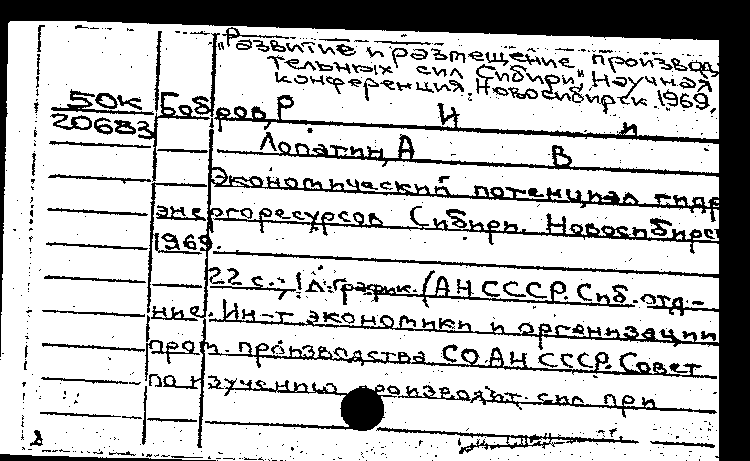 "Развитие и размещение производ
тельных сил Сибири", Научная
конференция. Новосибирск. 1969.
50К Бобров, Р И и
20683
Лопатин, А В
Экономический потенциал гидр
энергоресурсов Сибири. Новосибирск
1969.
22 с.; 1 л. график. (АН СССР. Сиб. отд-
ние. Ин-т экономики и организации
пром. производства СО АН СССР. Совет
по изучению производит. сил при